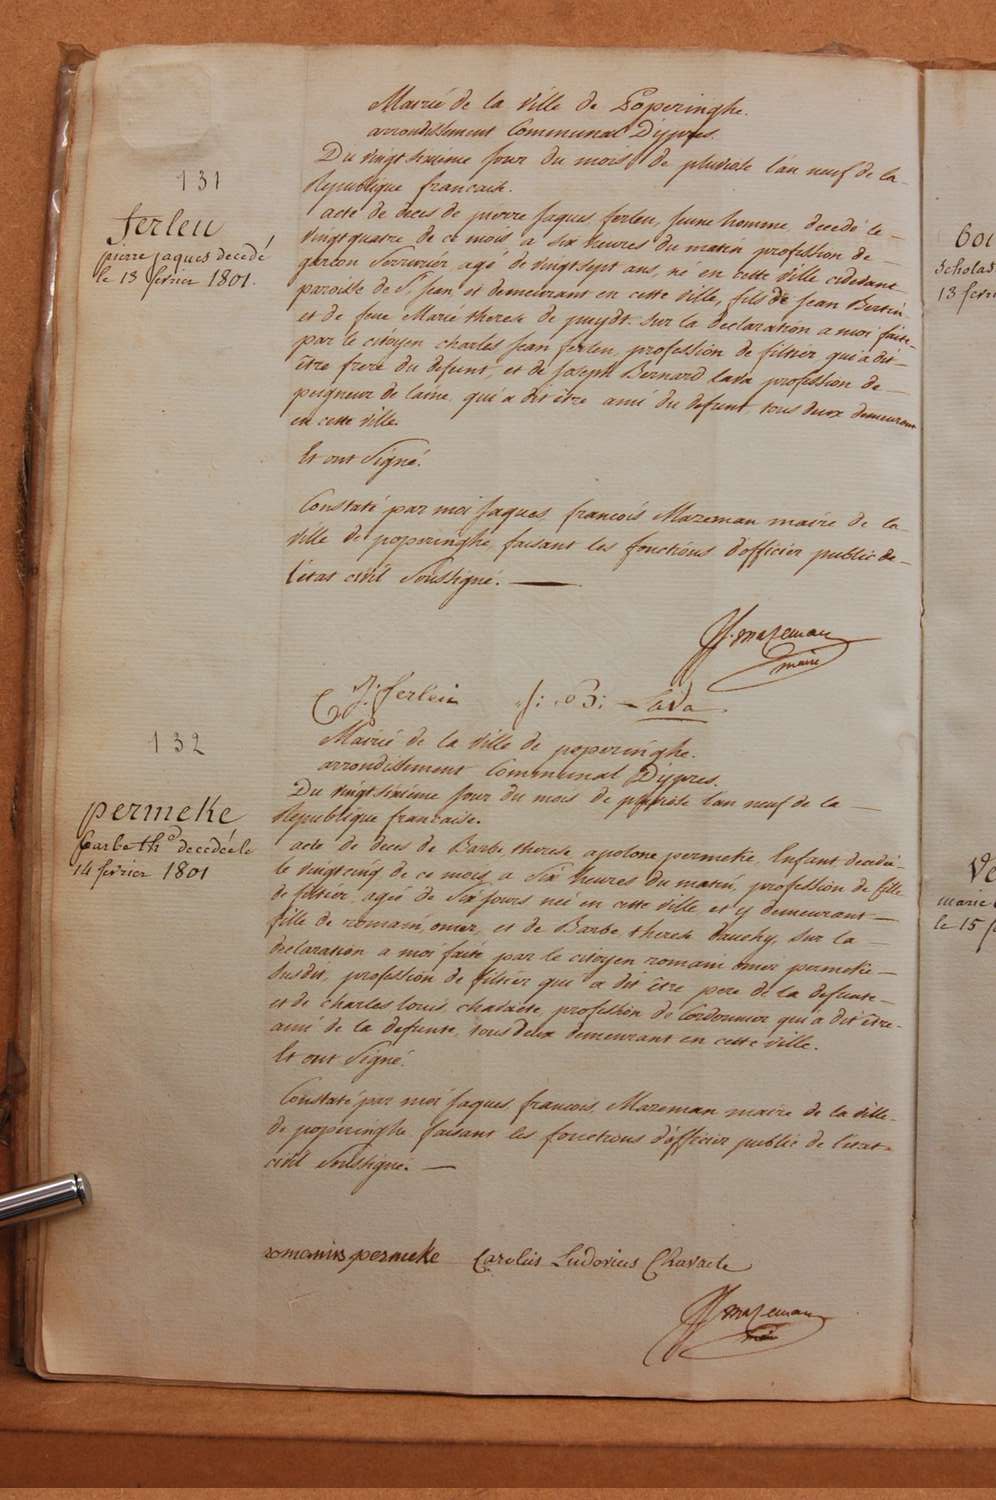 Mairié de la ville de Poperinghe.
arrondissement Communal D'ypres.
131
Du vingt sixième jour du mois de pluviose l'an neuf de la
Republique francaise.
ferleu
pierre jaques decedé
le 13 février 1801.
acte de deces de pierre jaques ferleu, jeune homme, decedé le
vingt quatre de ce mois, a six heures du matin profession de
garcon serrurier, agé de vingt sept ans, né en cette ville cidevant
paroisse de St Jean, et demeurant en cette ville, fils de jean Bertin
et de feue Marie therese de puydt, sur la declaration a moi faite
par le citoyen charles jean ferleu, profession de filtier qui a dit
être frere du defunt, et de joseph Bernard lava profession de
peigneur de laine qui a dit être ami du defunt, tous deux demeurant
en cette ville.
Et ont Signé.
Constaté par moi jaques françois Mazeman maire de la
ville de poperinghe, faisant les fonctions d'officier public de
l'état civil soussigné.
JF. mazeman
maire
C J: ferleu J: B: Lava
132
Mairié de la ville de poperinghe.
arrondissement Communal D'ypres.
Du vingt sixième jour du mois de l'an neuf de la
Republique francaise.
permeke
barbe th. decedée le
14 février 1801
acte de deces de Barbe therese apolone permeke, Enfant decedé
le vingt cinq de ce mois, a six heures du matin, profession de fille
de filtier, agé de six jours né en cette ville et y demeurant
fille de romain omer, et de Barbe therese dauchy, sur la
declaration a moi faite par le citoyen romain omer permeke
susdit, profession de filtier qui a dit être pere de la defunte
et de charles louis chavaete, profession de Cordonnier qui a dit être
ami de la defunte, tous deux demeurant en cette ville.
Et ont Signé.
Constaté par moi jaques francois Mazeman maire de la ville
de poperinghe, faisant les fonctions d'officier public de l'état
civil soussigné.
romanus permeke Carolus Ludovicus Chavaete
JF mazeman
13 fevri
marie
le 15 f